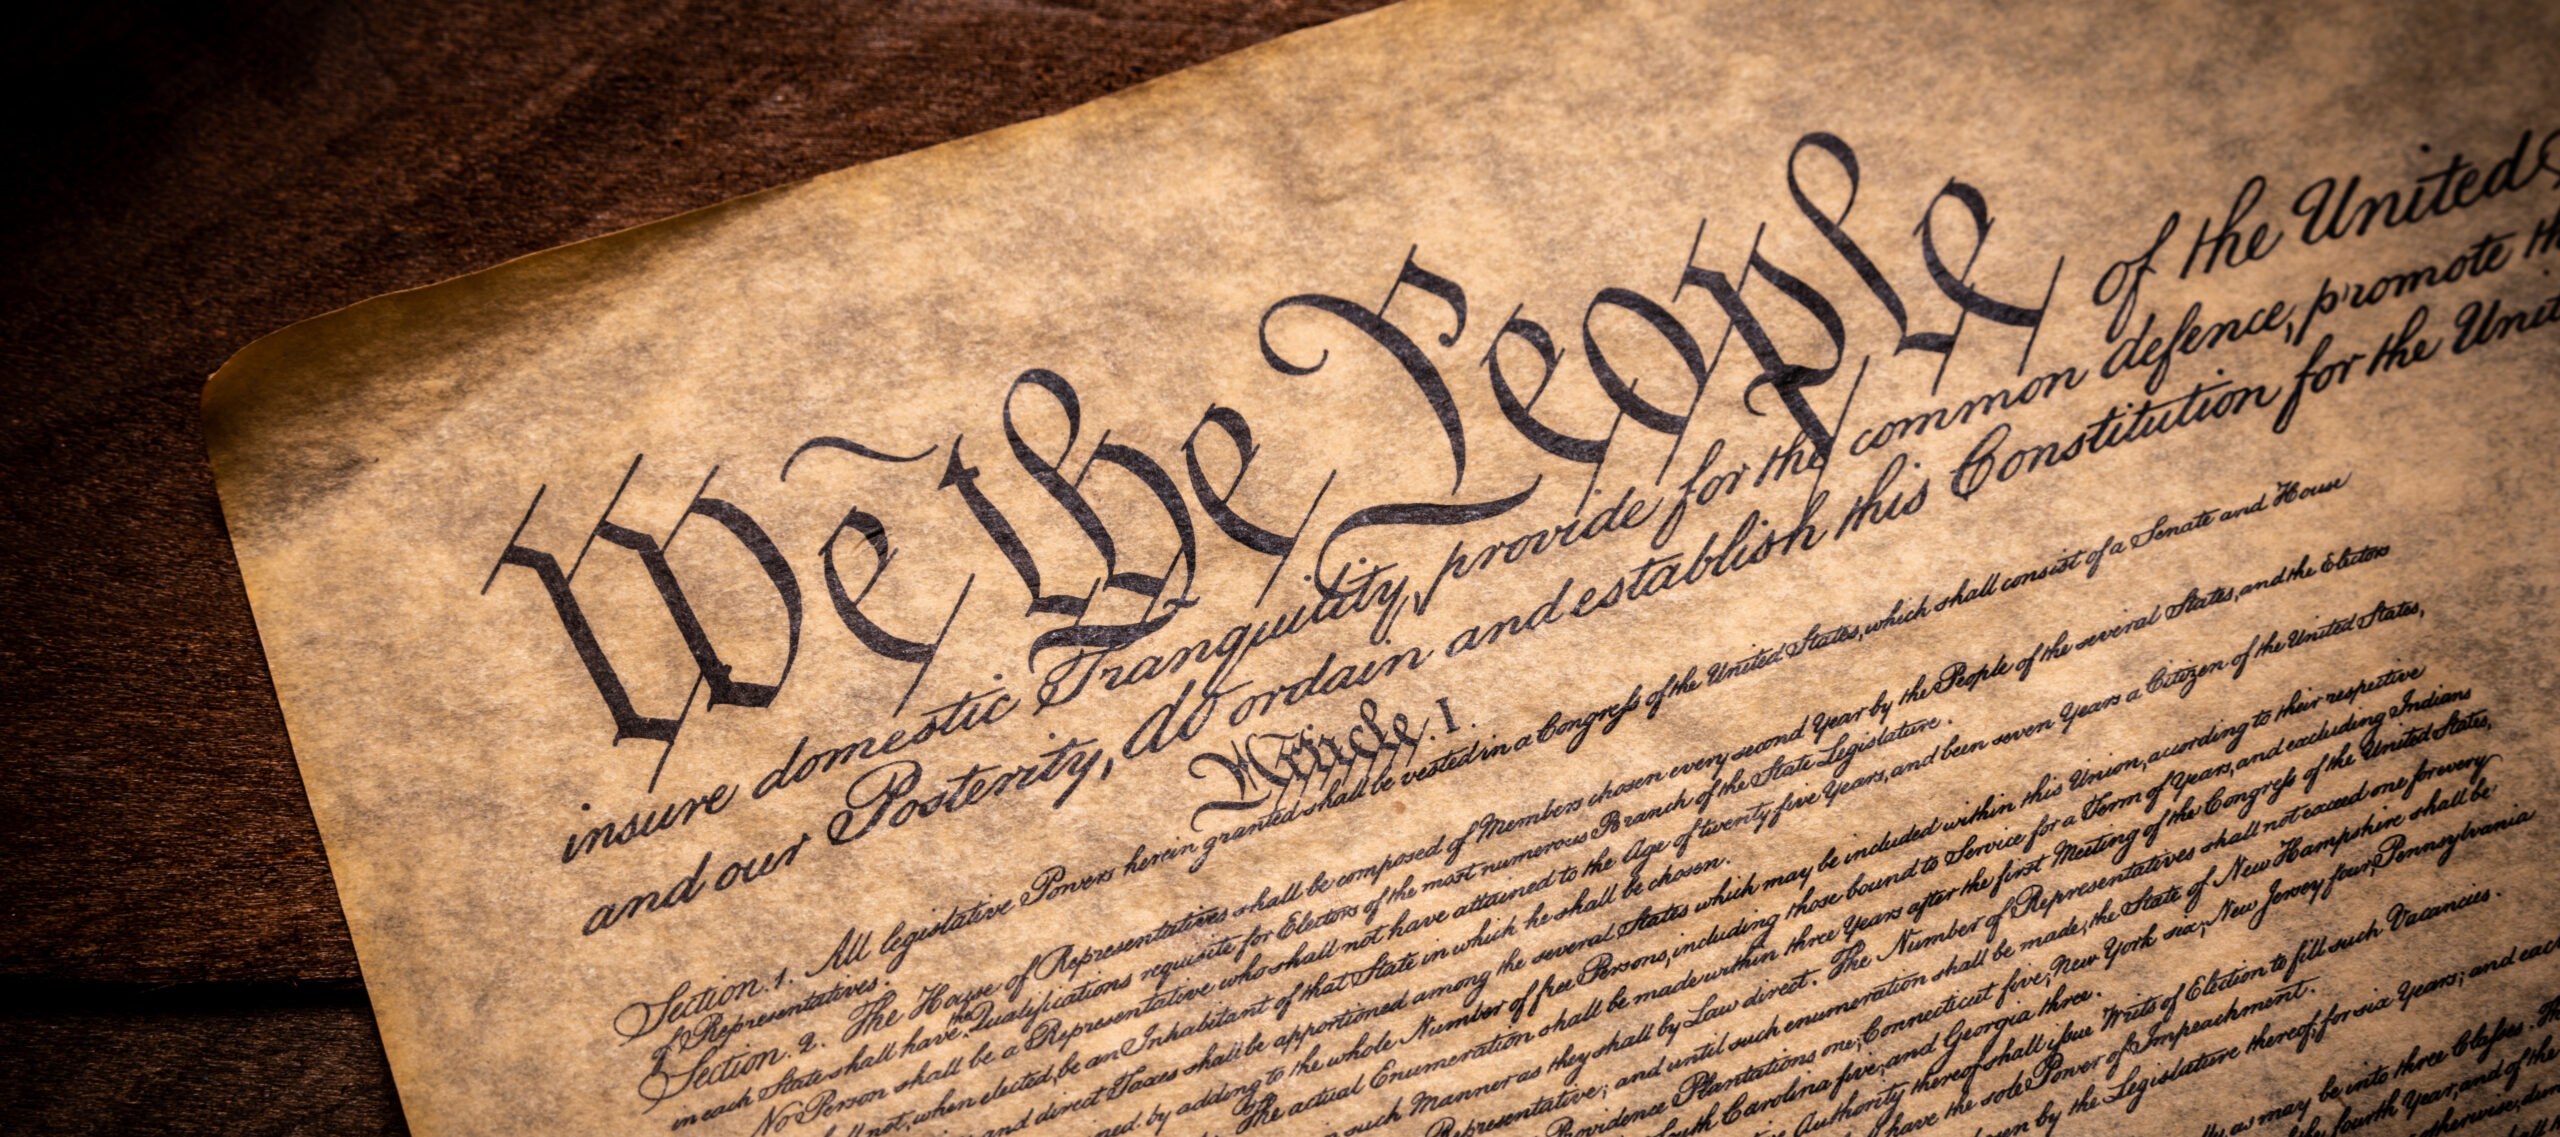 We the People of the United
insure domestic Tranquility, provide for the common defence, promote
and our Posterity, do ordain and establish this Constitution for the
Article. I.
Section. 1. All legislative Powers herein granted shall be vested in a Congress of the United States, which shall consist of a Senate and House
of Representatives.
Section. 2. The House of Representatives shall be composed of Members chosen every second Year by the People of the several States, and the Electors
in each State shall have the Qualifications requisite for Electors of the most numerous Branch of the State Legislature.
No Person shall be a Representative who shall not have attained to the Age of twenty five Years, and been seven Years a Citizen of the United States,
not, when elected, be an Inhabitant of that State in which he shall be chosen.
and direct Taxes shall be apportioned among the several States which may be included within this Union, according to their respective
by adding to the whole Number of free Persons, including those bound to Service for a Term of Years, and excluding Indians
The actual Enumeration shall be made within three Years after the first Meeting of the Congress of the United States,
such Manner as they shall by Law direct. The Number of Representatives shall not exceed one for every
Representative; and until such enumeration shall be made, the State of New Hampshire shall be
Providence Plantations one, Connecticut five, New York six, New Jersey four, Pennsylvania
South Carolina five, and Georgia three.
Authority thereof shall issue Writs of Election to fill such Vacancies.
have the sole Power of Impeachment.
by the Legislature thereof, for six Years; and
as may be into three Classes.
fourth Year, and of the
otherwise,